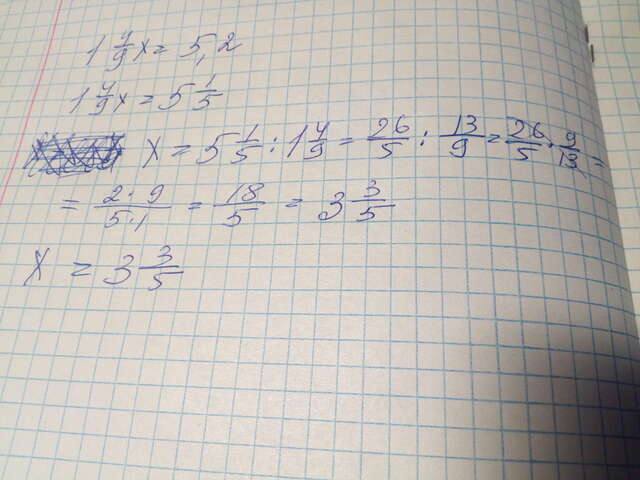 1 4/9 x = 5,2
1 4/9 x = 5 1/5
x = 5 1/5 : 1 4/9 = 26/5 : 13/9 = 26/5 · 9/13 =
= 2·9/5·1 = 18/5 = 3 3/5
x = 3 3/5